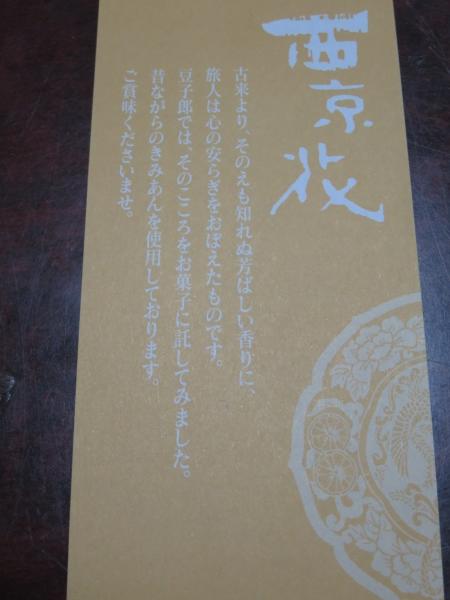 西京
古来より、そのえも知れぬ芳ばしい香りに、
旅人は心の安らぎをおぼえたものです。
豆子郎では、そのこころをお菓子に託してみました。
昔ながらのきみあんを使用しております。
ご賞味くださいませ。